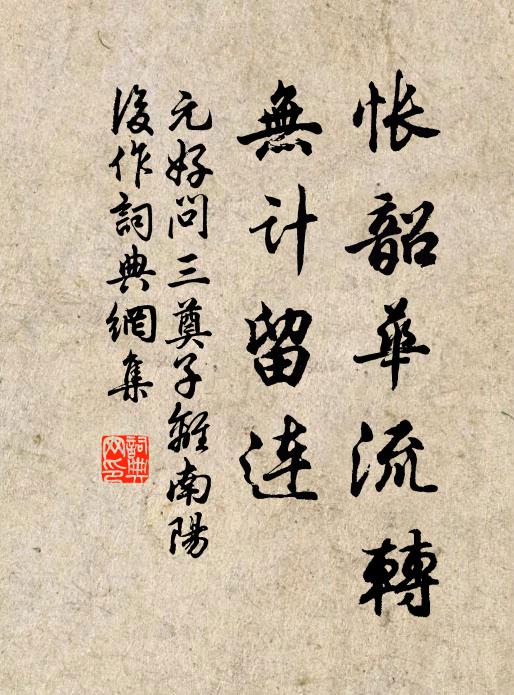 悵韶華流轉
無計留连
元好問三奠子離南陽
後作詞典網集
詞典
网印